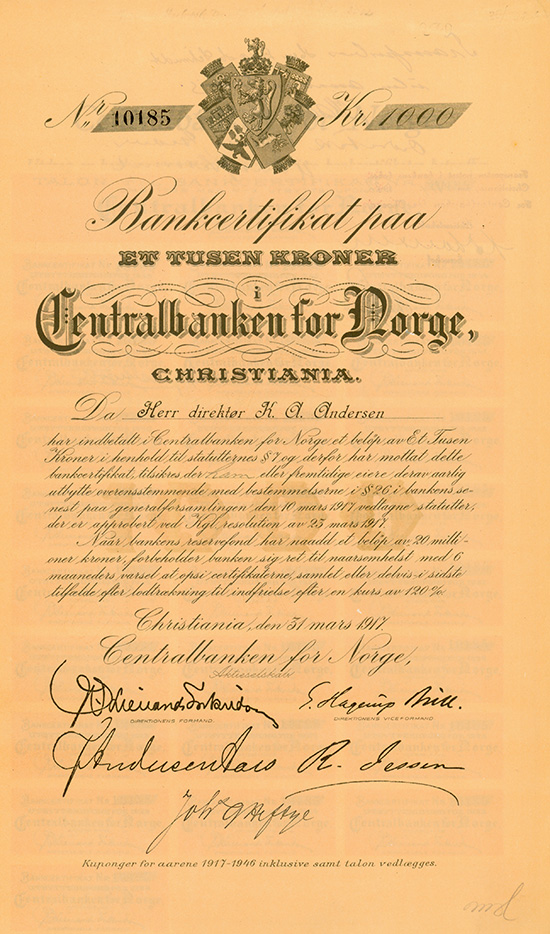 Nr. 10185 Kr. 1000
Bankcertifikat paa
ET TUSEN KRONER
i
Centralbanken for Norge,
CHRISTIANIA.
Da Herr direktør K. A. Andersen
har indbetalt i Centralbanken for Norge et beløp av Et Tusen
Kroner i henhold til statutternes § 7 og derfor har mottat dette
bankcertifikat, tilsikres der ham eller fremtidige eiere derav aarlig
utbytte overensstemmende med bestemmelserne i § 26 i bankens se-
nest paa generalforsamlingen den 10 mars 1917 vedtagne statutter,
der er approbert ved Kgl. resolution av 23 mars 1917.
Naar bankens reservefond har naadd et beløp av 20 milli-
oner kroner, forbeholder banken sig ret til naarsomhelst med 6
maaneders varsel at opsi certifikaterne, samlet eller delvis - i sidste
tilfælde efter lodtrækning til indfrielse efter en kurs av 120 %
Christiania, den 31 mars 1917
Centralbanken for Norge,
Aktieselskab
DIREKTIONENS FORMAND. DIREKTIONENS VICEFORMAND
R. Jessen
Kuponger for aarene 1917-1946 inklusive samt talon vedlægges.